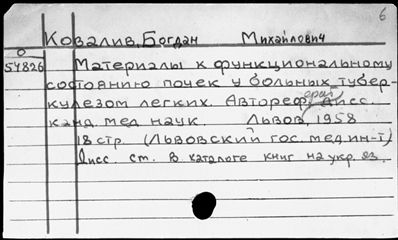 6
Ковалив, Богдан Михайлович
О
57826 Материалы к функциональному
состоянию почек у больных тубер-
кулезом легких. Автореф. дисс.
канд. мед наук. Львов, 1958
18 стр. (Львовский гос. мед ин-т)
Дисс. ст. в каталоге книг на укр. яз.